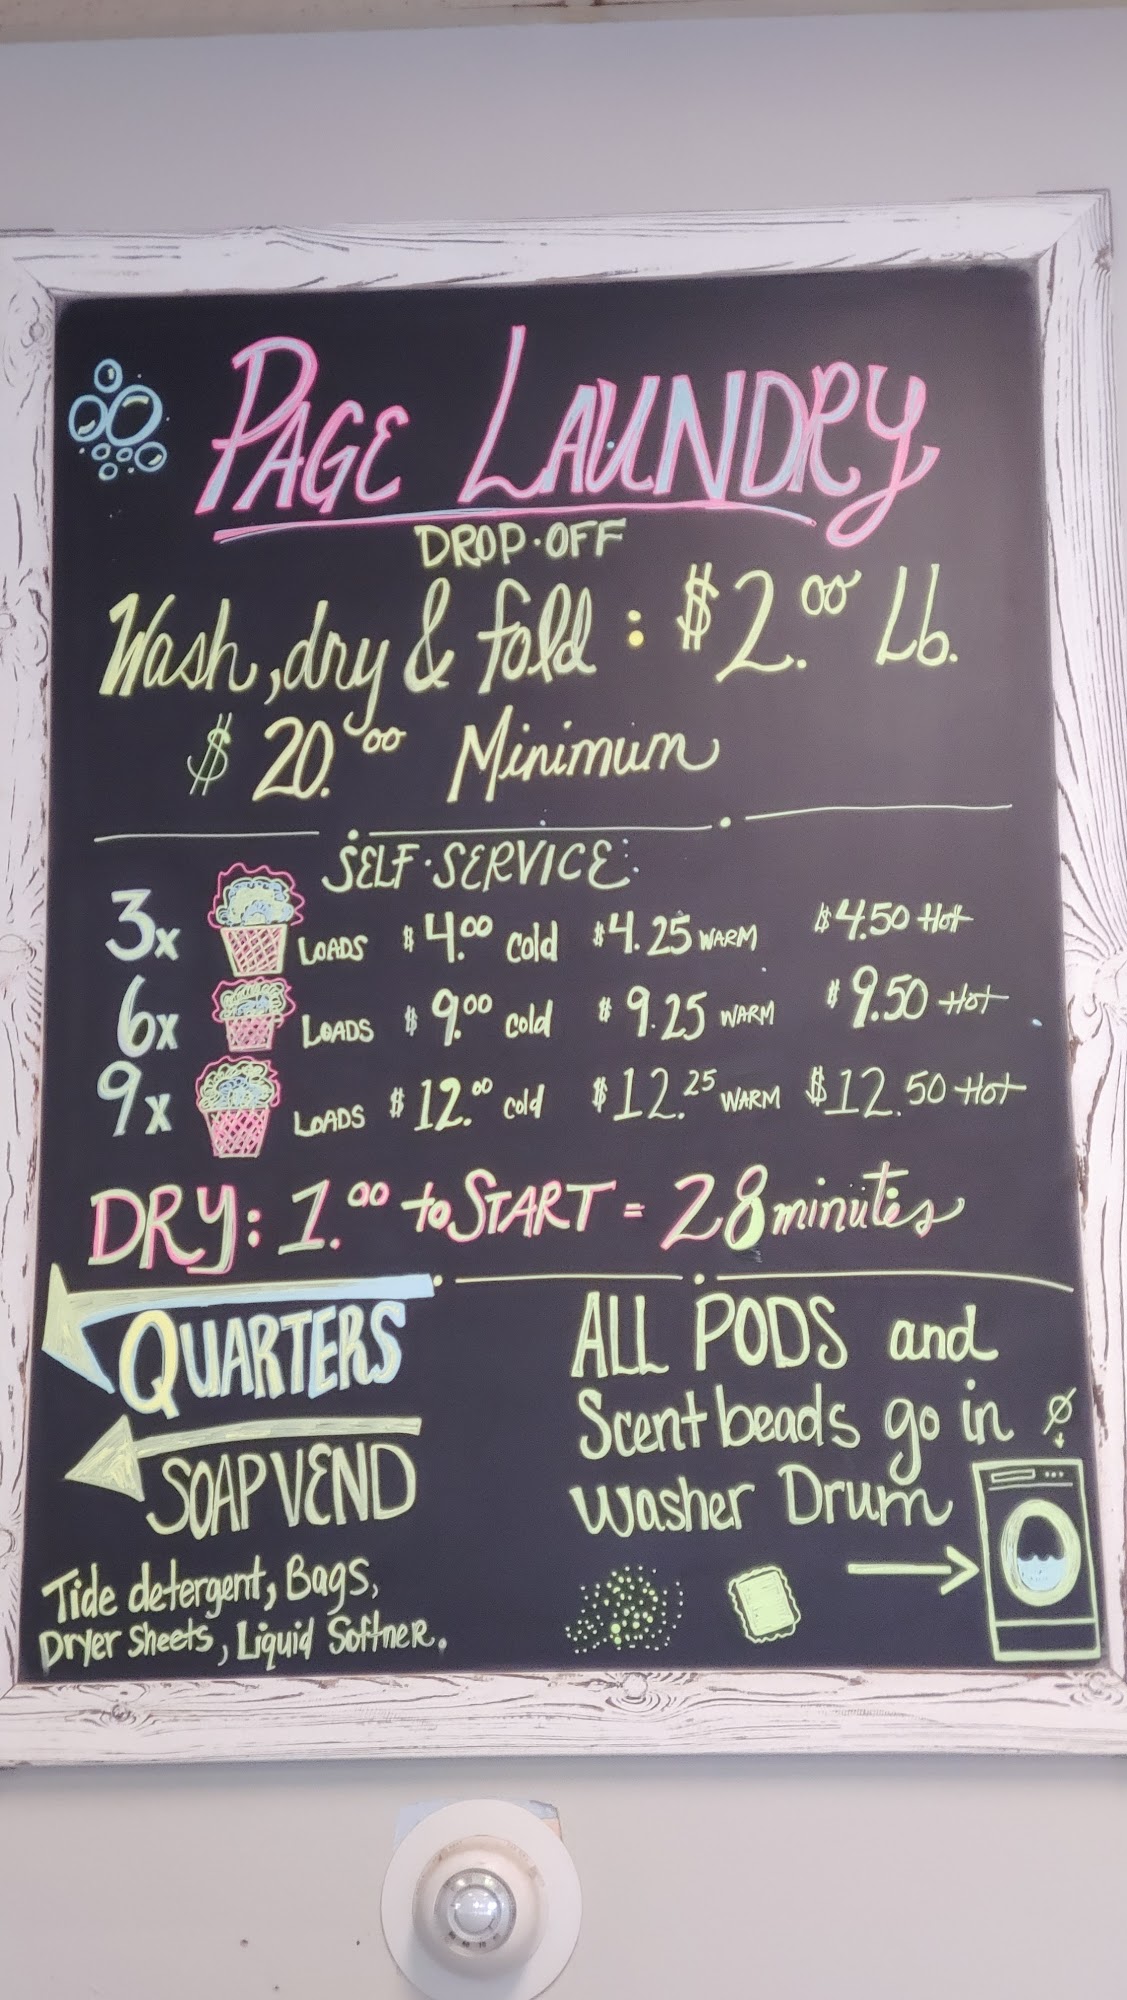 PAGE LAUNDRY
DROP·OFF
Wash, dry & fold : $2.00 Lb.
$20.00 Minimum
SELF·SERVICE:
3x LOADS $4.00 cold $4.25 WARM $4.50 Hot
6x LOADS $9.00 cold $9.25 WARM $9.50 Hot
9x LOADS $12.00 cold $12.25 WARM $12.50 Hot
DRY: 1.00 to START = 28 minutes
QUARTERS
SOAP VEND
Tide detergent, Bags,
Dryer Sheets, Liquid Softner.
ALL PODS and
Scent beads go in
washer Drum